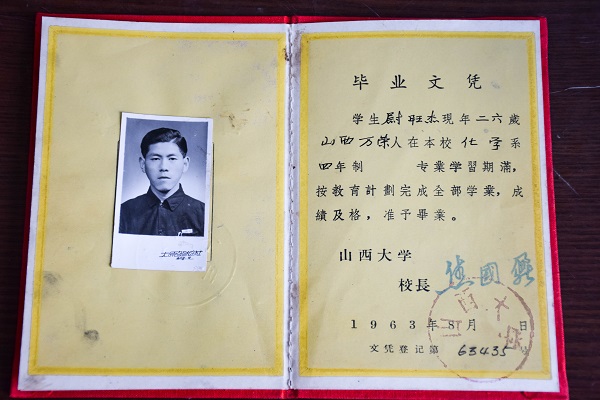 毕业文凭
学生尉旺杰现年二六歲
山西万荣人在本校化学系
四年制 专業学習期滿，
按教育計劃完成全部学業，成
績及格，准予畢業。
山西大学
校長
1963年8月 日
文凭登记第 63435